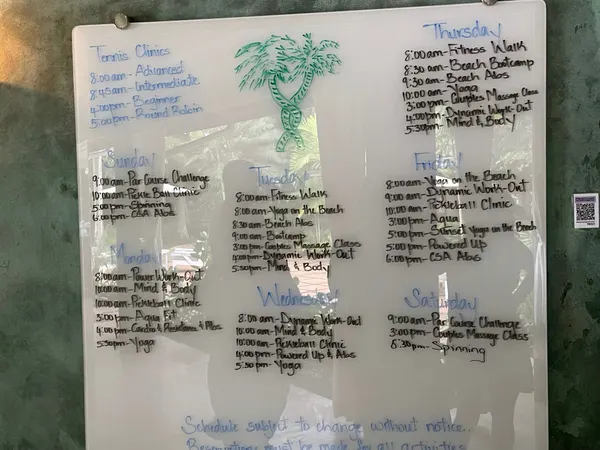 Tennis Clinics
8:00am-Advanced
8:45am-Intermediate
4:00pm-Beginner
5:00pm-Round Robin
Sunday
9:00am-Par Course Challenge
10:00am-Pickle Ball Clinic
5:00pm-Spinning
6:00pm-CSA Abs
Monday
8:00am-Power Work-Out
10:00am-Mind & Body
10:00am-Pickleball Clinic
3:00pm-Aqua Fit
4:00pm-Cardio & Resistance & Abs
5:30pm-Yoga
Tuesday
8:00am-Fitness Walk
8:00am-Yoga on the Beach
8:30am-Beach Abs
9:00am-Bootcamp
3:00pm-Couples Massage Class
4:00pm-Dynamic Work-Out
5:30pm-Mind & Body
Wednesday
8:00am-Dynamic Work-Out
10:00am-Mind & Body
10:00am-Pickleball Clinic
4:00pm-Powered Up & Abs
5:30pm-Yoga
Thursday
8:00am-Fitness Walk
8:30am-Beach Bootcamp
9:30am-Beach Abs
10:00am-Yoga
3:00pm-Couples Massage Class
4:00pm-Dynamic Work-Out
5:30pm-Mind & Body
Friday
8:00am-Yoga on the Beach
9:00am-Dynamic Work-Out
10:00am-Pickleball Clinic
3:00pm-Aqua
5:00pm-Sunset Yoga on the Beach
5:00pm-Powered Up
6:00pm-CSA Abs
Saturday
9:00am-Par Course Challenge
3:00pm-Couples Massage Class
5:30pm-Spinning
Schedule subject to change without notice..
Reservations must be made for all activities